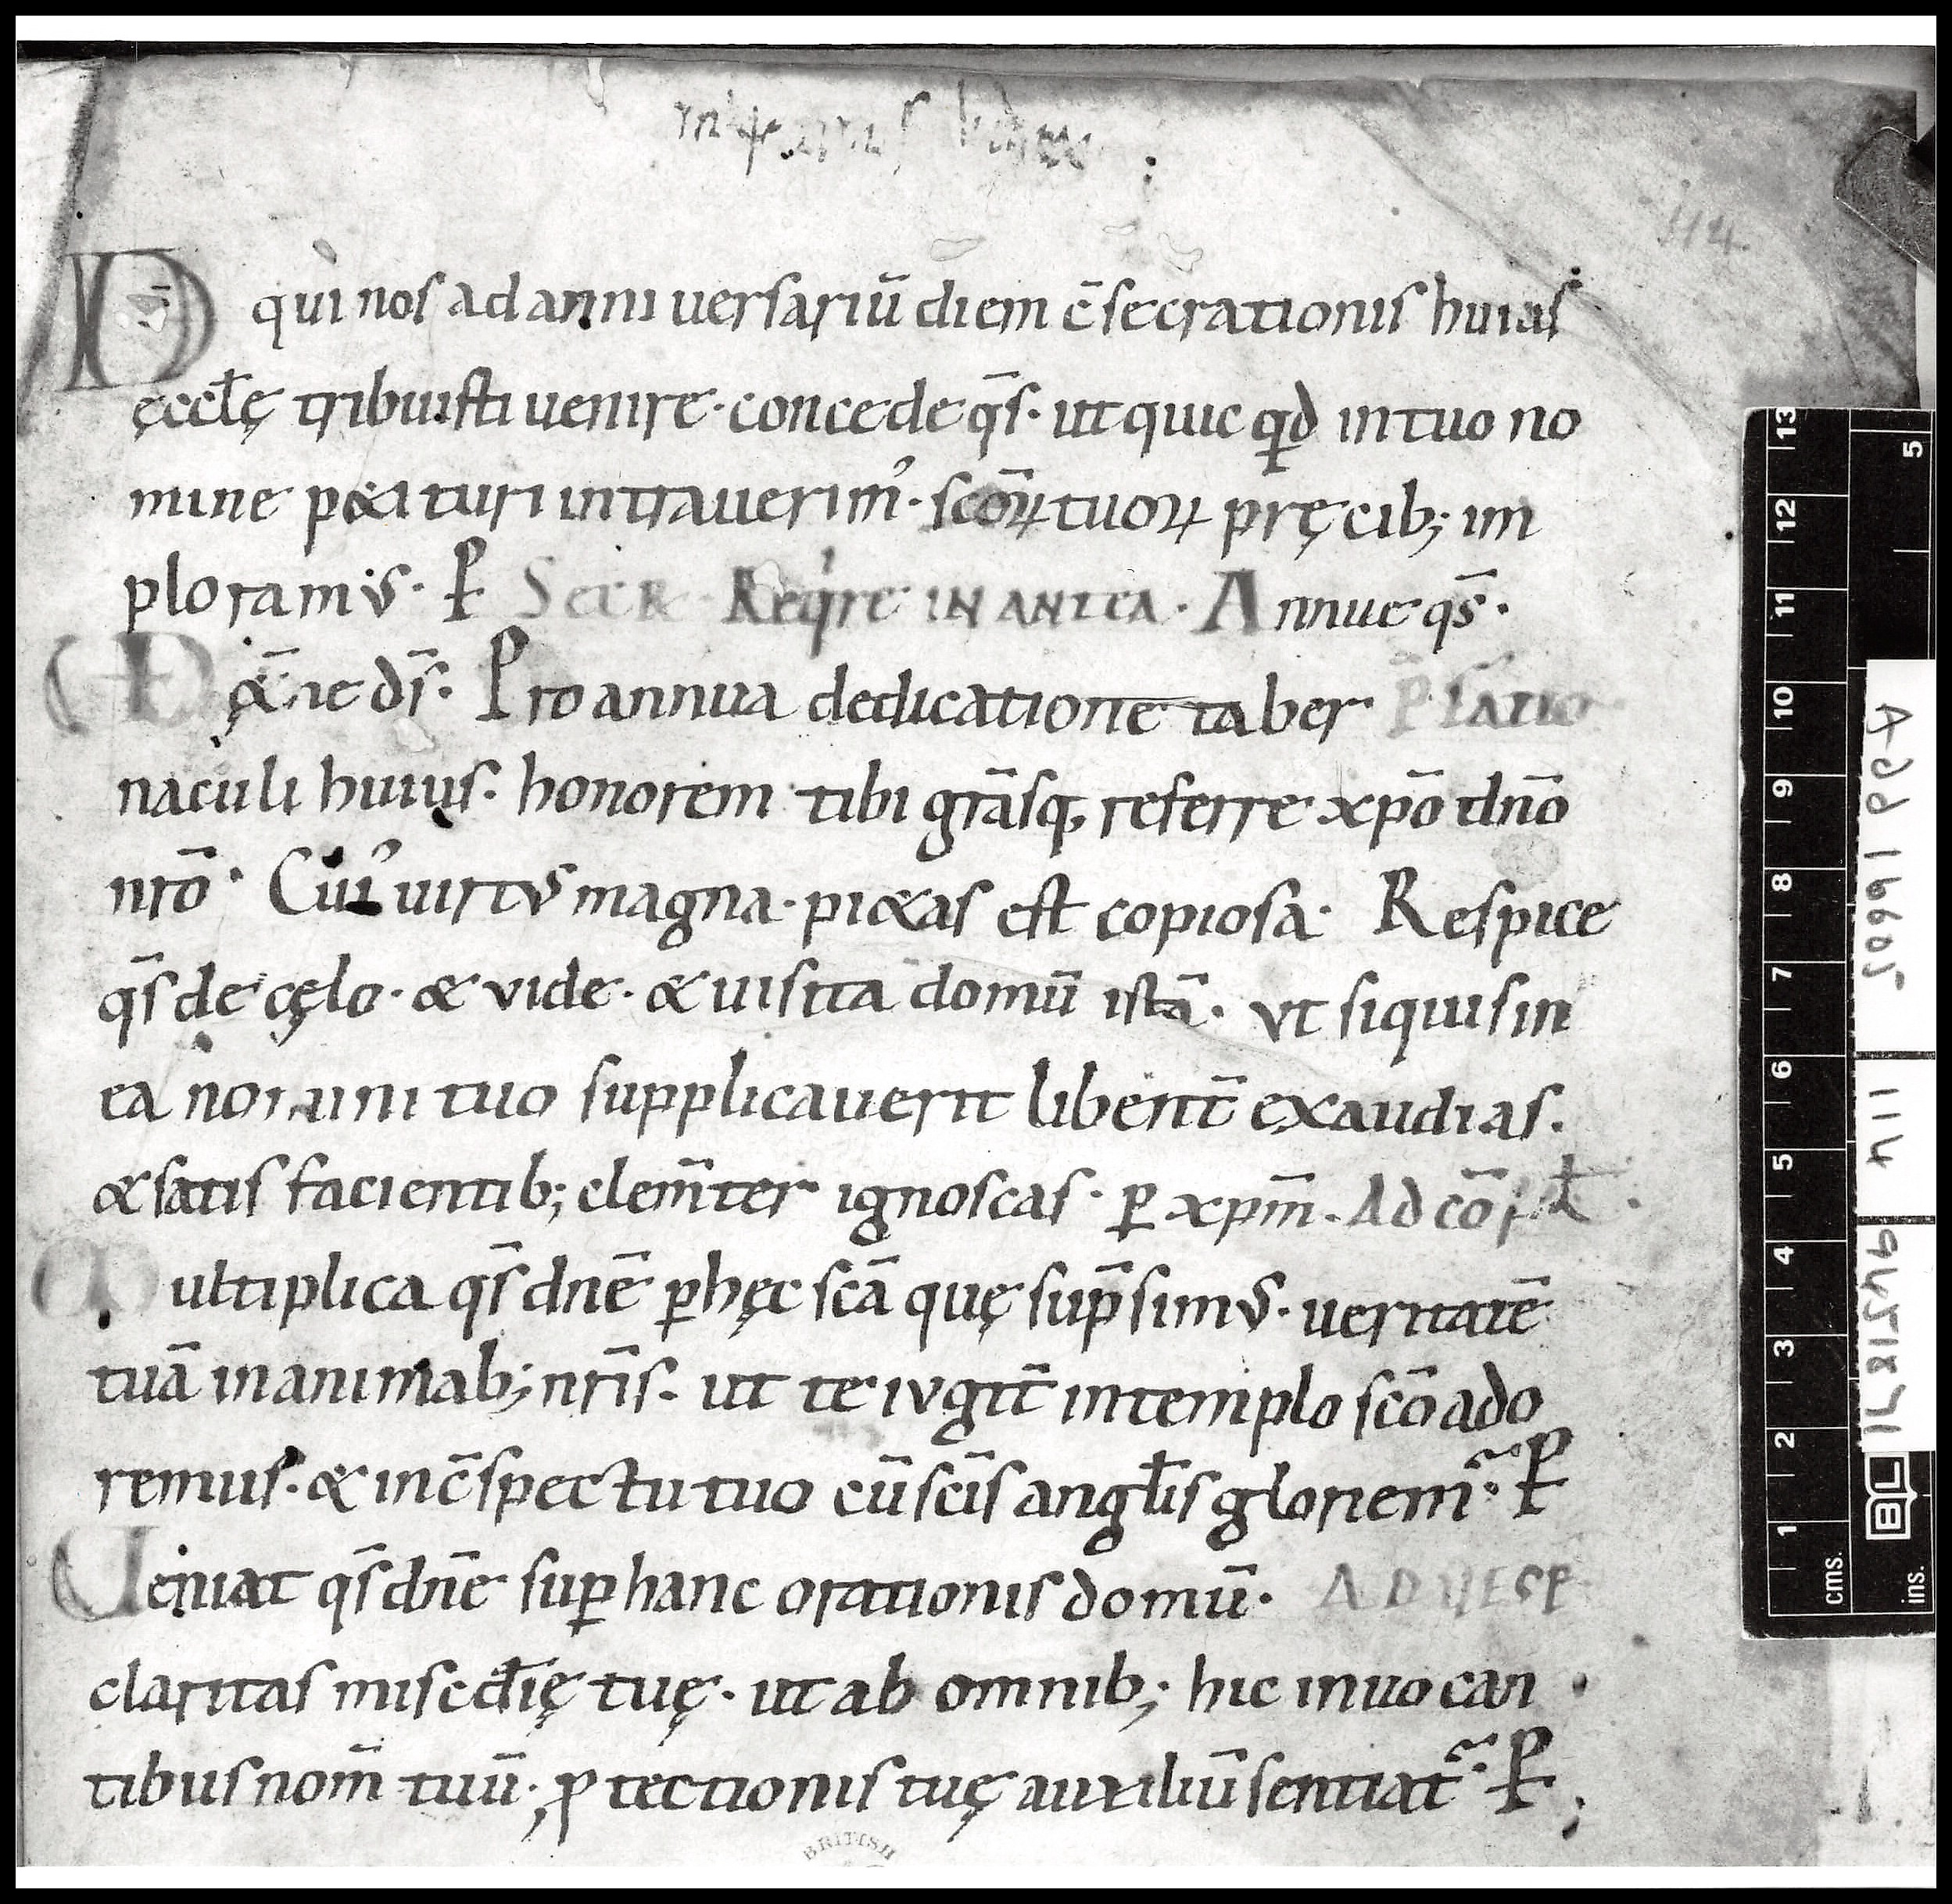 D̄ qui nos ad anniuersariū diem c̄secrationis huius
ęccłę tribuisti uenire· concede q̄s· ut quicqd in tuo no
mine petituri intrauerim᾽· scōꝝ tuoꝝ pręcib; im
ploramus· P SECR Reqre IN ANTEA· Annue q̄s·
VD ę̄t̄ne ds̄· Pro annua dedicatione taber P̄FATIO
naculi huius· honorem tibi grā̄sq, referre xpō dnō
nrō· Cui᾽ uirtus magna· pietas est copiosa· Respice
q̄s de cęlo· & vide· & uisita domū istā· vt siquis in
ea nomini tuo supplicauerit libent̄ exaudias·
& satis facientib; clem̄ter ignoscas· ꝑ xpm̄· Ad cōpł·
Multiplica q̄s dnē ꝑ hęc scā quę sūpsimus· ueritatē
tuā in animab; nrīs· ut te iugit̄ in templo scō ado
remus· & in c̄spectu tuo cū scīs angłis gloriem̃· P
Veniat q̄s dnē suꝑ hanc orationis domū· AD VESP
claritas misc̄dię tuę· ut ab omnib; hic inuocan
tibus nom̄ tuū· ꝓtectionis tuę auxiliū sentiat̃· P;
114
Add 16605
114
9451871
13
12
11
10
9
8
7
6
5
4
3
2
1
cms.
5
ins.
BL
BRITISH